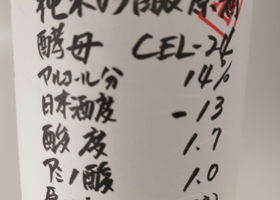 純米吟醸原酒
酵母 CEL-24
アルコール分 14%
日本酒度 -13
酸度 1.7
アミノ酸 1.0